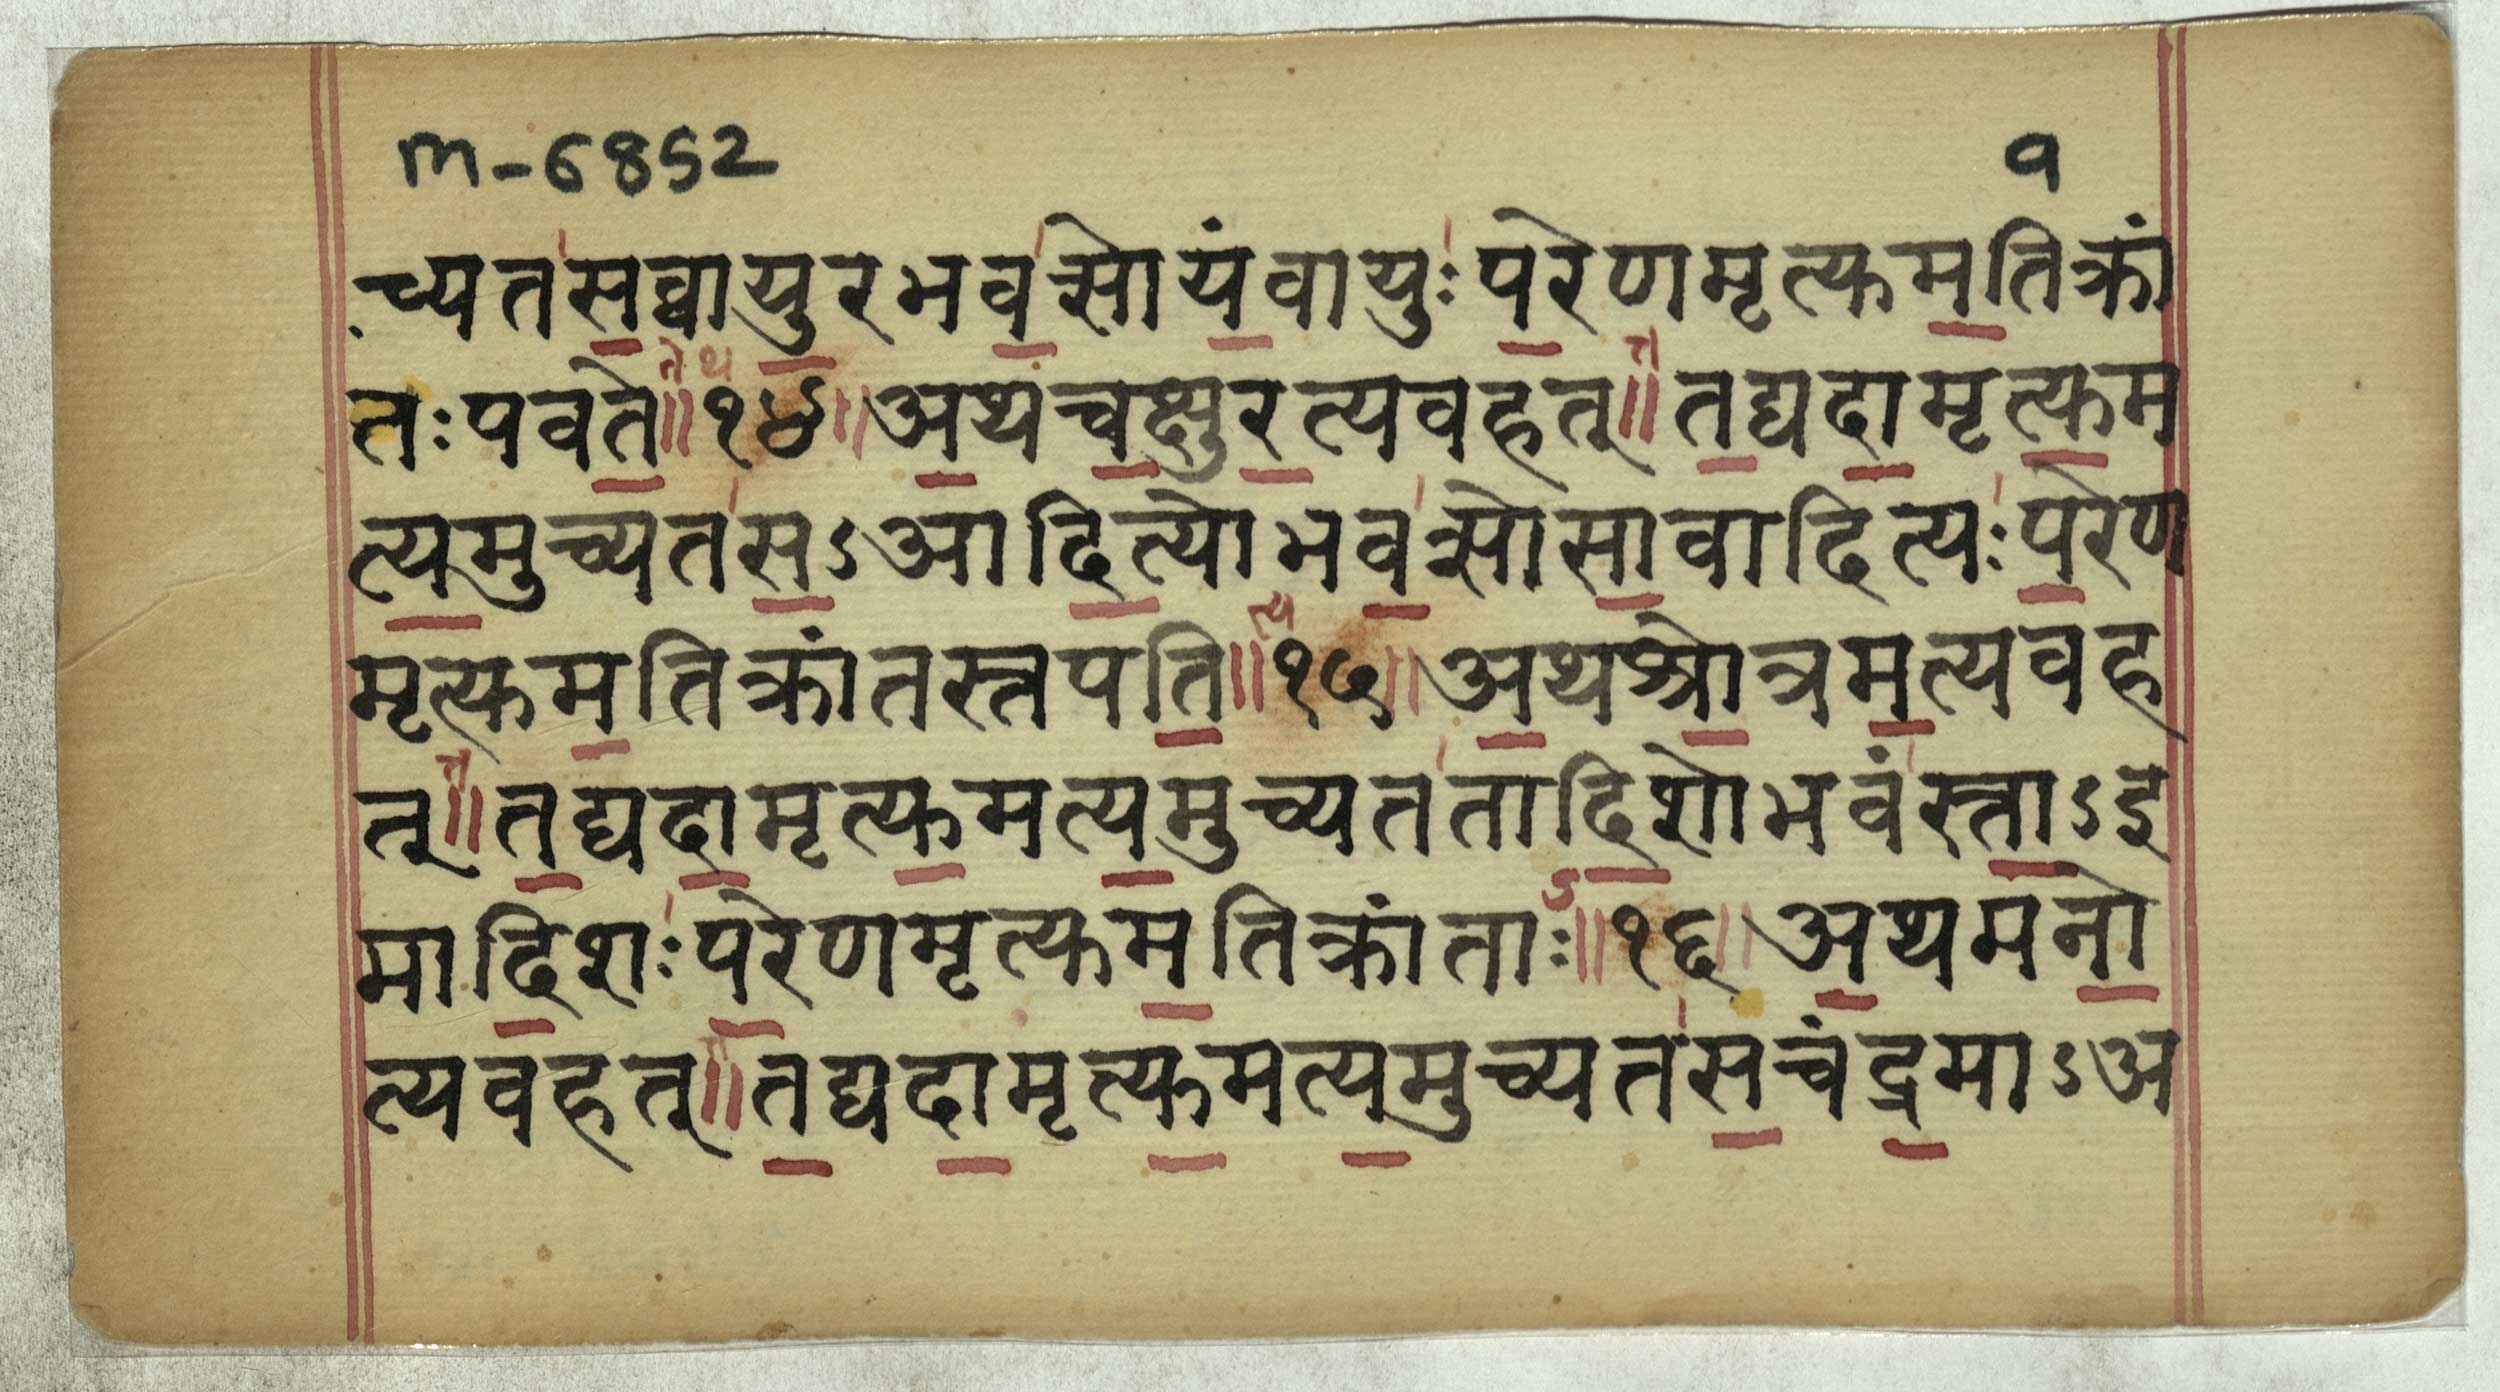 m-6852 १
च्यतसवायुरभवत्सोयंवायुःपरेणमृत्युमतिक्रां
तःपवते॥१४॥अथचक्षुरत्यवहत्॥तद्यदामृत्युम
त्यमुच्यतसऽआदित्योभवत्सोसावादित्यःपरेण
मृत्युमतिक्रांतस्तपति॥१५॥अथश्रोत्रमत्यवह
त्॥तद्यदामृत्युमत्यमुच्यततादिशोभवंस्ताऽइ
मादिशःपरेणमृत्युमतिक्रांताः॥१६॥अथमनो
त्यवहत्॥तद्यदामृत्युमत्यमुच्यतसचंद्रमाऽअ